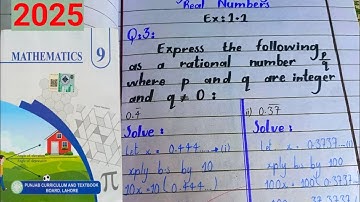 2025
MATHEMATICS 9
PUNJAB CURRICULUM AND TEXTBOOK
BOARD, LAHORE
Real Numbers
Ex: 1.1
Q:3:
Express the following
as a rational number p/q
where p and q are integer
and q ≠ 0 :
0.4̅
Solve :
let x = 0.444... → (i)
xply b.s by 10
10x = 10 ( 0.444..)
ii) 0.3̅7̅
Solve :
let x = 0.3737....
xply b.s by 100
100x = 100 (0.3737..
37.3737